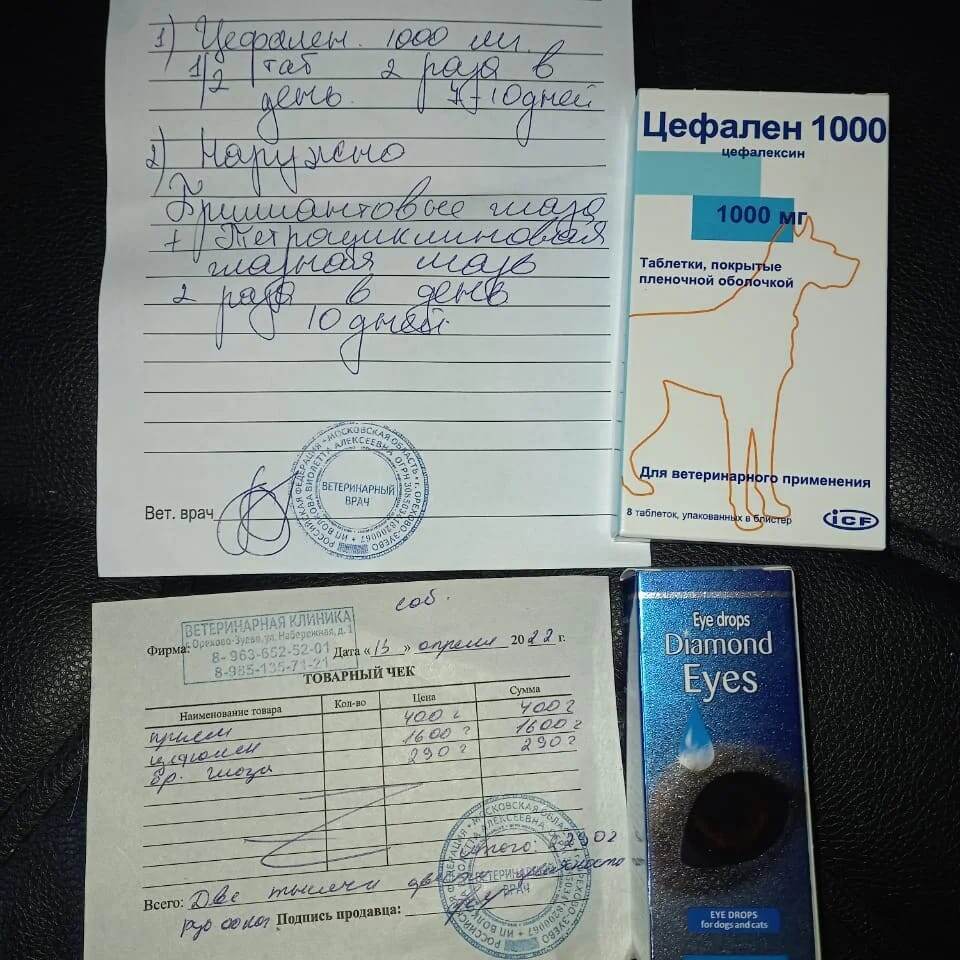 1) Цефален. 1000 мг.
1/2 таб 2 раза в
день. 7-10 дней
2) Наружно
Бриллиантовые глаза
+ Тетрациклиновая
глазная мазь
2 раза в день
10 дней.
Вет. врач
РОССИЙСКАЯ ФЕДЕРАЦИЯ • МОСКОВСКАЯ ОБЛАСТЬ • г. ОРЕХОВО-ЗУЕВО
ВИОЛЕТТА АЛЕКСЕЕВНА ОГРН
ВЕТЕРИНАРНЫЙ
ВРАЧ
Цефален 1000
цефалексин
1000 мг
Таблетки, покрытые
пленочной оболочкой
Для ветеринарного применения
8 таблеток, упакованных в блистер
icf
соб.
ВЕТЕРИНАРНАЯ КЛИНИКА
г. Орехово-Зуево, ул. Набережная, д.1
8- 963-652-52-01
8-985-135-71-21
Фирма: Дата «13» апреля 2022 г.
ТОВАРНЫЙ ЧЕК
Наименование товара Кол-во Цена Сумма
прием 400 400
цефален 1600 1600
бр. глаза 290 290
Итого: 2290
Всего: Две тысячи двести девяносто
руб 00 коп Подпись продавца:
ВЕТЕРИНАРНЫЙ
ВРАЧ
Eye drops
Diamond
Eyes
EYE DROPS
for dogs and cats